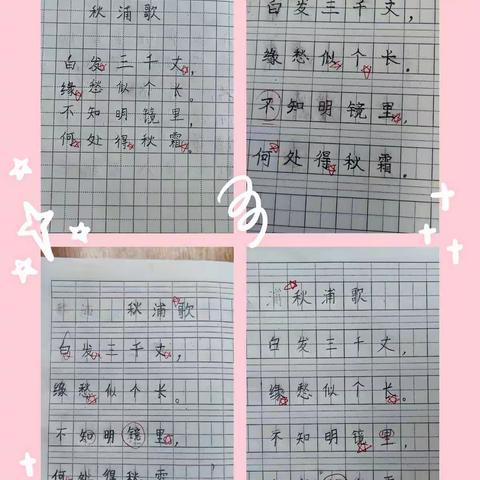 秋浦歌
白发三千丈,
缘愁似个长。
不知明镜里,
何处得秋霜。
白发三千丈,
缘愁似个长.
不知明镜里,
何处得秋霜.
秋浦歌
白发三千丈,
缘愁似个长。
不知明镜里,
何处得秋霜
秋浦歌
白发三千丈,
缘愁似个长。
不知明镜里,